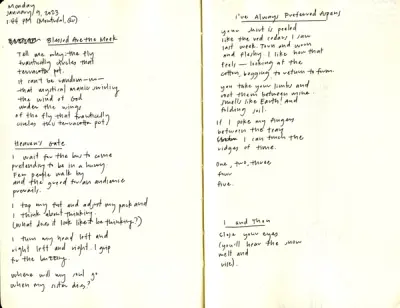 Monday
January 9, 2023
1:44 PM (Montreal, Qc)
Blessed Are the Meek
Tell me why the fly
frantically circles that
terracotta pot.
It can't be random—
that mystical manic swirling
the wind of God
under the wings
of the fly that frantically
circles this terracotta pot
Heaven's Gate
I wait for the bus to come
pretending to be in a hurry
Few people walk by
and the good
prevails.
I tap my foot and adjust my pack and
I think about thinking.
(what does it look like to be thinking?)
I turn my head left and
right left and right. I grip
to the
where will my soul go
when my sister dies?
I've Always Preferred Aspens
your shirt is peeled
like the red cedars I saw
last week. Torn and worn
and fleshy I like how that
feels—looking at the
cotton, begging to return to form.
you take your limbs and
root them between mine.
Smells like Earth! and
folding soil.
If I poke my fingers
between the
I can touch the
ridges of time.
One, two, three
four
five.
I and Thou
Close your eyes
(you'll hear the snow
melt and